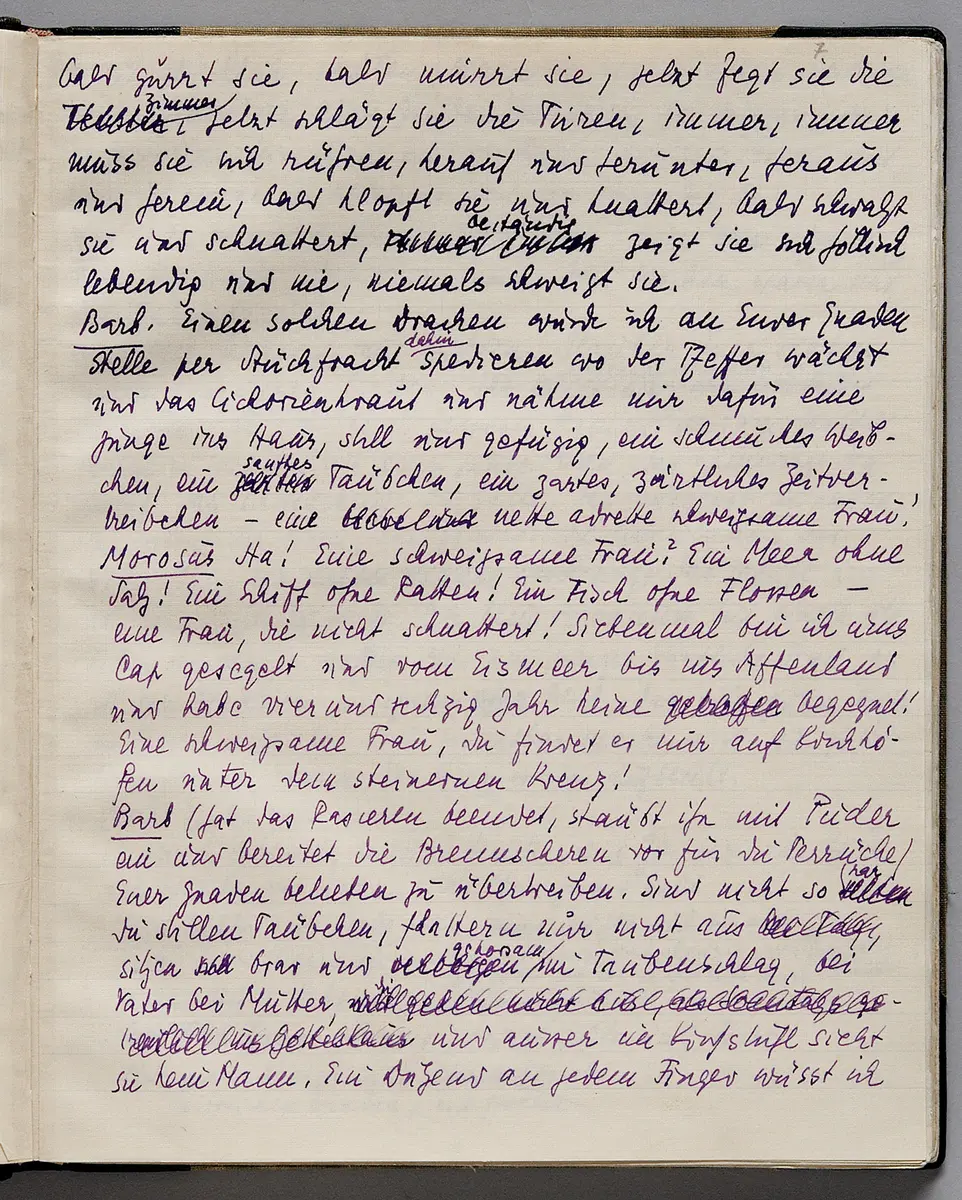 7
bald gurrt sie, bald murrt sie, jetzt fegt sie die
Zimmer, jetzt schlägt sie die Türen, immer, immer
muss sie sich rühren, herauf und herunter, heraus
und herein, bald klopft sie und knattert, bald schwatzt
sie und schnattert, beständig zeigt sie sich höllisch
lebendig und nie, niemals schweigt sie.
Barb. Einen solchen Drachen würde ich an Euver Gnaden
Stelle per Stückfracht dahin spedieren wo der Pfeffer wächst
und das Cichorienkraut und nähme mir dafür eine
junge ins Haus, still und gefügig, ein schmuckes Weib-
chen, ein sanftes Täubchen, ein zartes, zärtliches Zeitver-
treibchen – eine nette adrette schweigsame Frau!
Morosus Ha! Eine schweigsame Frau? Ein Meer ohne
Salz! Ein Schiff ohne Ratten! Ein Fisch ohne Flossen –
eine Frau, die nicht schnattert! Siebenmal bin ich ums
Cap gesegelt und vom Eismeer bis ins Affenland
und habe vierundsechzig Jahr keine begegnet!
Eine schweigsame Frau, die findet er nur auf Kirchhö-
fen unter dem steinernen Kreuz!
Barb (hat das Rasieren beendet, stäubt ihn mit Puder
ein und bereitet die Brennscheren vor für die Perrücke)
Euer Gnaden belieben zu übertreiben. Sind nicht so rar
die stillen Täubchen, flattern nur nicht aus
sitzen brav und gehorsam im Taubenschlag, bei
Vater bei Mutter, und ausser im Kirchstuhl sieht
sie kein Mann. Ein Dutzend an jedem Finger wüsst ich